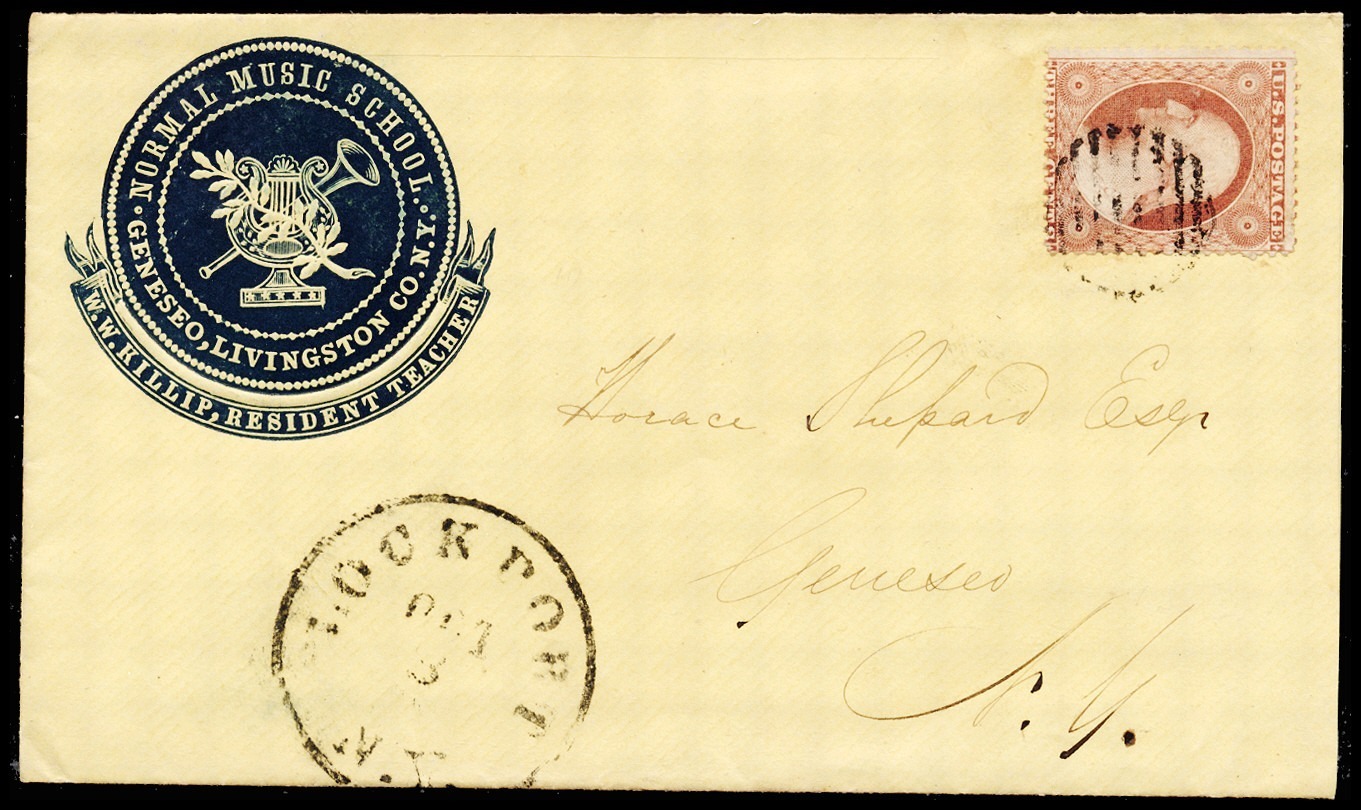 · NORMAL MUSIC SCHOOL. ·
GENESEO, LIVINGSTON CO. N.Y.
W. W. KILLIP, RESIDENT TEACHER
U.S. POSTAGE
Horace Shepard Esqr
Geneseo
N. Y.
LOCKPORT
OCT
N.Y.